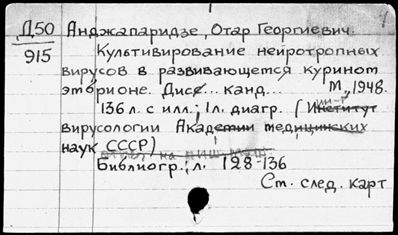 Д50 Анджапаридзе, Отар Георгиевич.
915 Культивирование нейротропных
вирусов в развивающемся курином
эмбрионе. Дисс... канд... М., 1948.
136 л. с илл.; 1 л. диагр. (Институт
вирусологии Академии медицинских
наук СССР)
Библиогр.: л. 128-136
См. след. карт